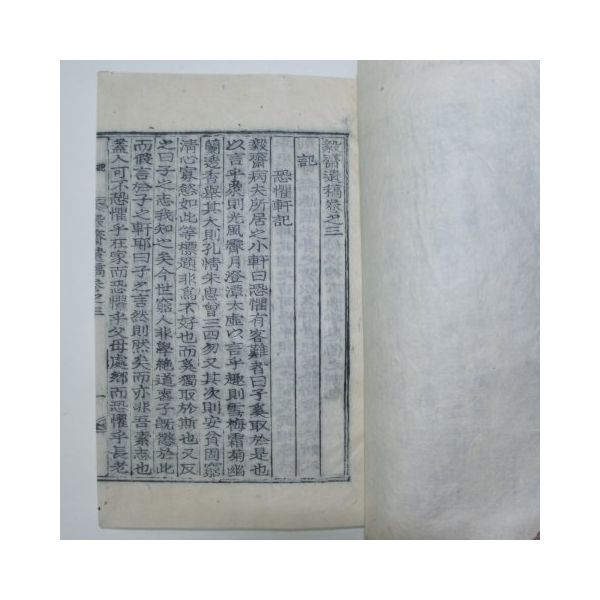 毅齋遺稿卷之三
記
恐懼軒記
毅齋病夫所居之小軒曰恐懼有客難者曰子奚取於是也
以言乎象則光風霽月澄潭太虛以言乎趣則雪梅霜菊幽
蘭遠香擧其大則孔情朱思曾三四勿又其次則安貧固窮
淸心寡慾如此等標題非爲不好也而奚獨取於斯也又反
之曰子之志我知之矣今世窮人非學絶道喪子旣懲於此
而假言於子之軒耶曰子之言然則然矣而亦非吾素志也
蓋人可不恐懼乎在家而恐懼乎父母處鄕而恐懼乎長老
毅齋遺稿卷之三